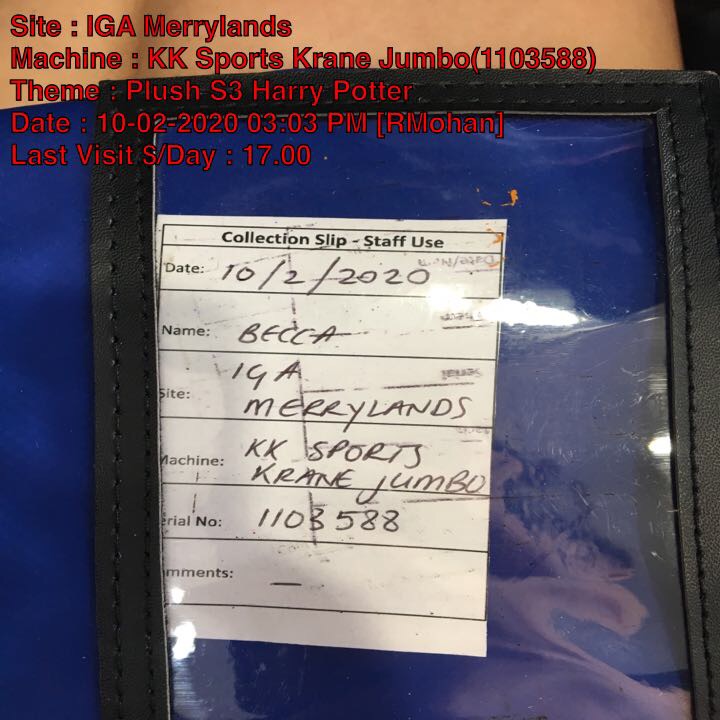 Site : IGA Merrylands
Machine : KK Sports Krane Jumbo(1103588)
Theme : Plush S3 Harry Potter
Date : 10-02-2020 03:03 PM [RMohan]
Last Visit S/Day : 17.00
Collection Slip - Staff Use
Date: 10/2/2020
Name: BECCA
IGA
Site: MERRYLANDS
KK SPORTS
Machine: KRANE JUMBO
erial No: 1103588
mments: —